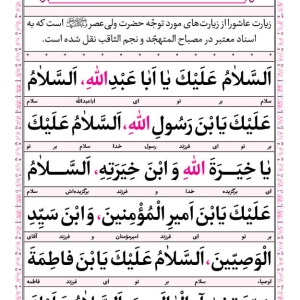 زیارت عاشورا از زیارت‌های مورد توجّه حضرت ولی‌عصر است که به
اسناد معتبر در مصباح المتهجّد و نجم الثاقب نقل شده است.
اَلسَّلامُ عَلَیْكَ یا اَبا عَبْدِاللهِ، اَلسَّلامُ
سلام بر تو ای اباعبدالله سلام
عَلَیْكَ یَا بْنَ رَسُولِ اللهِ، اَلسَّلامُ عَلَیْكَ
بر تو ای فرزند رسول خدا سلام بر تو
یا خِیَـرَةَ اللهِ وَ ابْنَ خِیَرَتِهِ، اَلسَّـلامُ
ای برگزیده خدا و فرزند برگزیده‌اش سلام
عَلَیْكَ یَا بْنَ اَمیرِ الْمُؤْمِنینَ، وَ ابْنَ سَیِّدِ
بر تو ای فرزند امیرمؤمنان و فرزند آقای
الْوَصِیّینَ، اَلسَّلامُ عَلَیْكَ یَا بْنَ فاطِمَةَ
اوصیاء سلام بر تو ای فرزند فاطمه